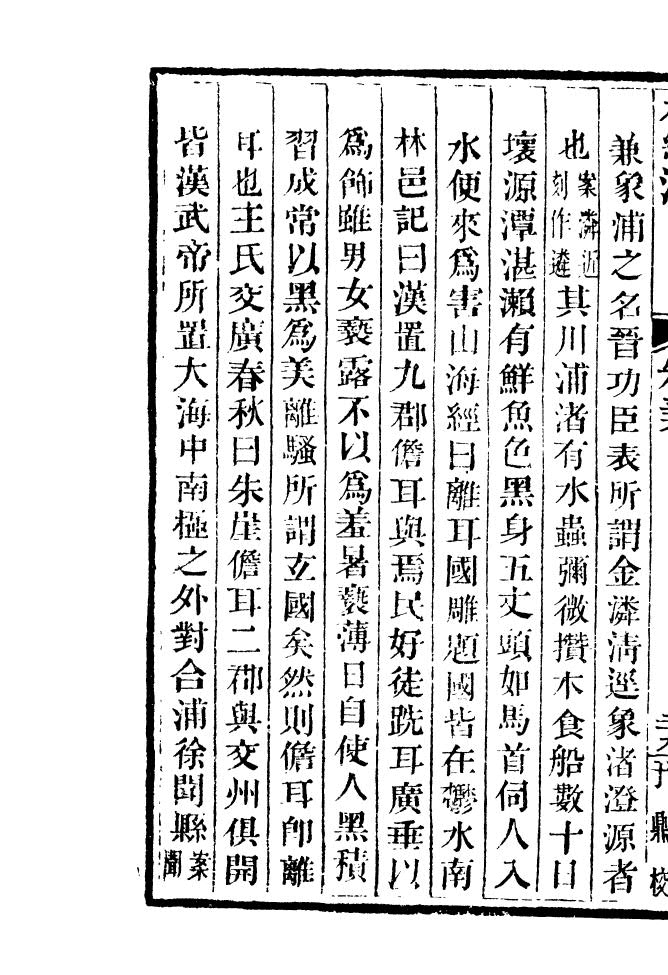 兼象浦之名晉功臣表所謂金潾淸逕象渚澄源者
也案潾近刻作遴其川浦渚有水蟲彌微攢木食船數十日
壞源潭湛瀨有鮮魚色黑身五丈頭如馬首伺人入
水便來爲害山海經曰離耳國雕題國皆在鬱水南
林邑記曰漢置九郡儋耳與焉民好徒跣耳廣垂以
爲飾雖男女褻露不以爲羞暑褻薄日自使人黑積
習成常以黑爲美離騷所謂玄國矣然則儋耳卽離
耳也王氏交廣春秋曰朱崖儋耳二郡與交州俱開
皆漢武帝所置大海中南極之外對合浦徐聞縣案聞